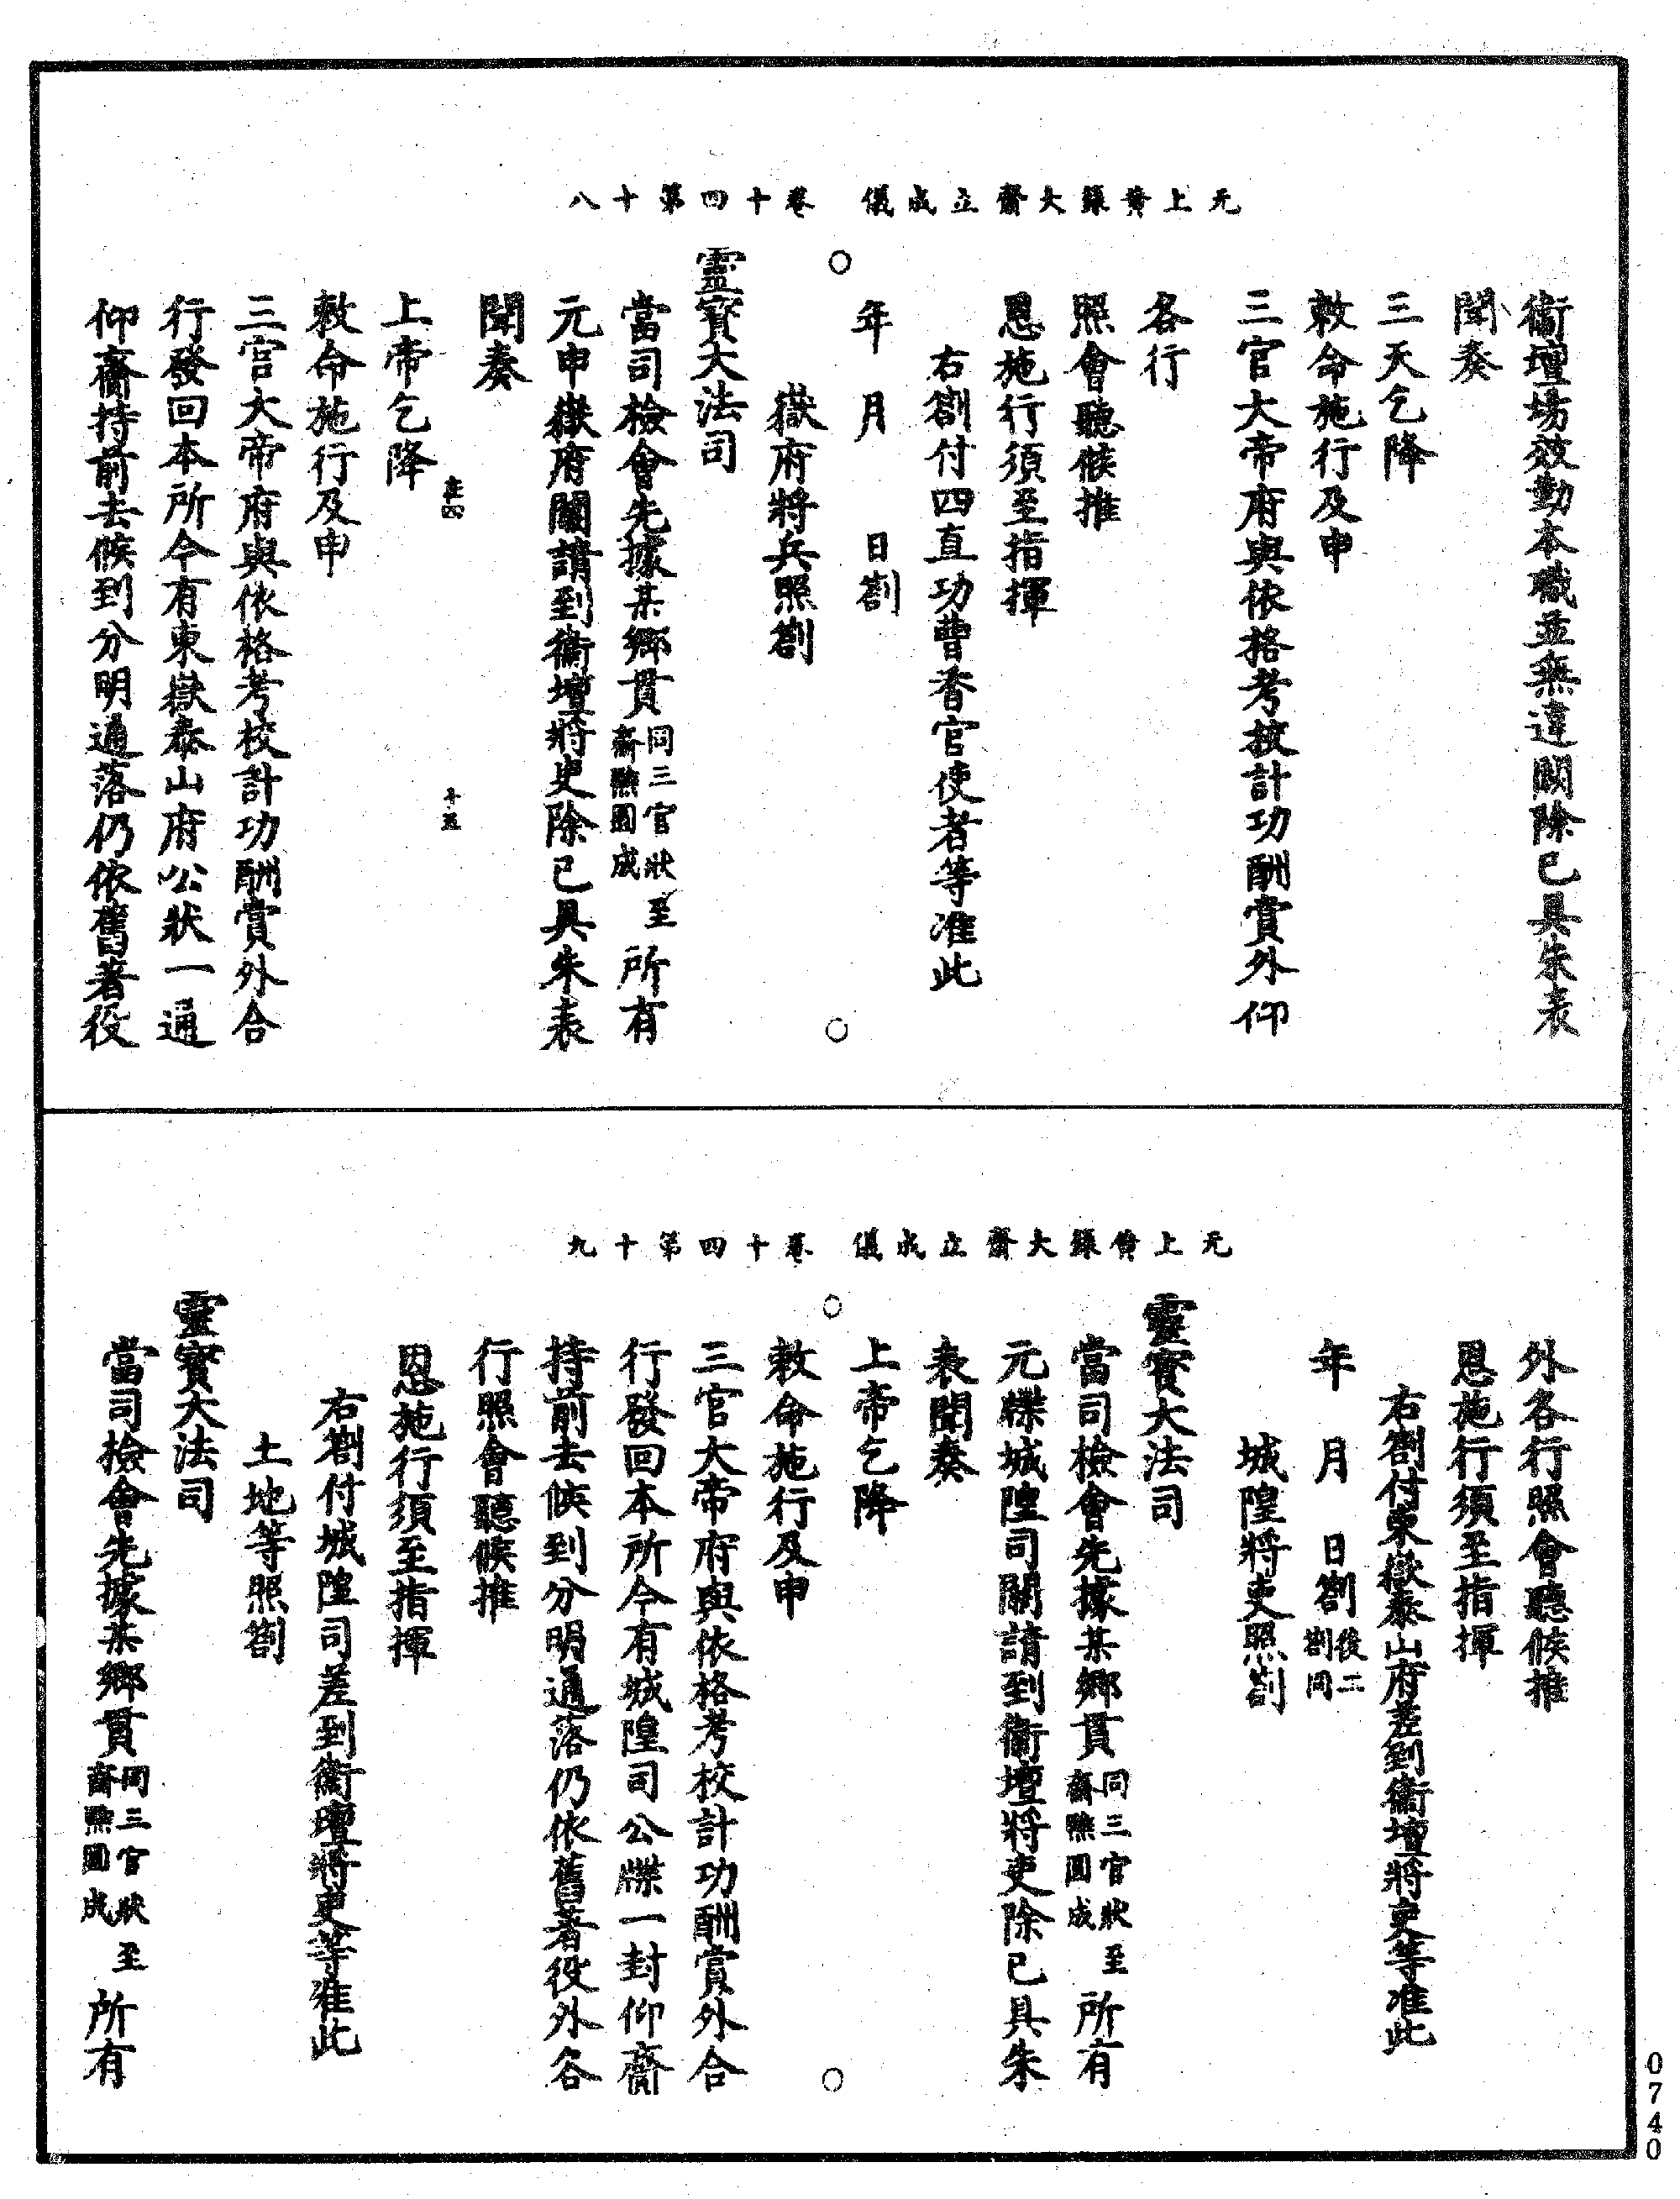 無上黃籙大齋立成儀　卷十四第十八
衞壇場效勤本職並無違闕除已具朱表
聞奏
三天乞降
敕命施行及申
三官大帝府與依格考校計功酬賞外仰
各行
照會聽候推
恩施行須至指揮
右劄付四直功曹香官使者等准此
年　月　日劄
嶽府將兵照劄
靈寶大法司
當司檢會先據某鄉貫同三官狀至齋醮圓成所有
元申嶽府關請到衞壇將吏除已具朱表
聞奏
上帝乞降
敕命施行及申
三官大帝府與依格考校計功酬賞外合
行發回本所今有東嶽泰山府公狀一通
仰齎持前去候到分明通落仍依舊著役
無上黃籙大齋立成儀　卷十四第十九
外各行照會聽候推
恩施行須至指揮
右劄付東嶽泰山府差到衞壇將吏等准此
年　月　日劄後二劄同
城隍將吏照劄
靈寶大法司
當司檢會先據某鄉貫同三官狀至齋醮圓成所有
元牒城隍司關請到衞壇將吏除已具朱
表聞奏
上帝乞降
敕命施行及申
三官大帝府與依格考校計功酬賞外合
行發回本所今有城隍司公牒一封仰齎
持前去候到分明通落仍依舊著役外各
行照會聽候推
恩施行須至指揮
右劄付城隍司差到衞壇將吏等准此
土地等照劄
靈寶大法司
當司檢會先據某鄉貫同三官狀至齋醮圓成所有
0740